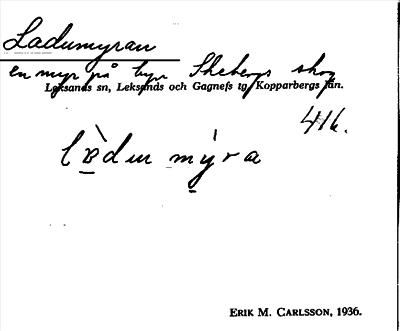 Ladumyran
en myr på byn Skebergs skog
Leksands sn, Leksands och Gagnefs tg, Kopparbergs län.
416.
lɐ̀du mýra
ERIK M. CARLSSON, 1936.